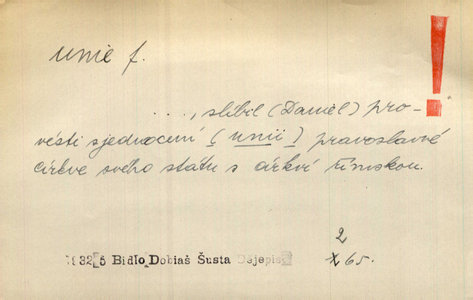 unie f.
!
...., slíbil (Daniel) pro-
vésti sjednocení (unii) pravoslavné
církve svého státu s církví římskou.
1932[5 Bidlo Dobiáš Šusta Dějepis
2
65.